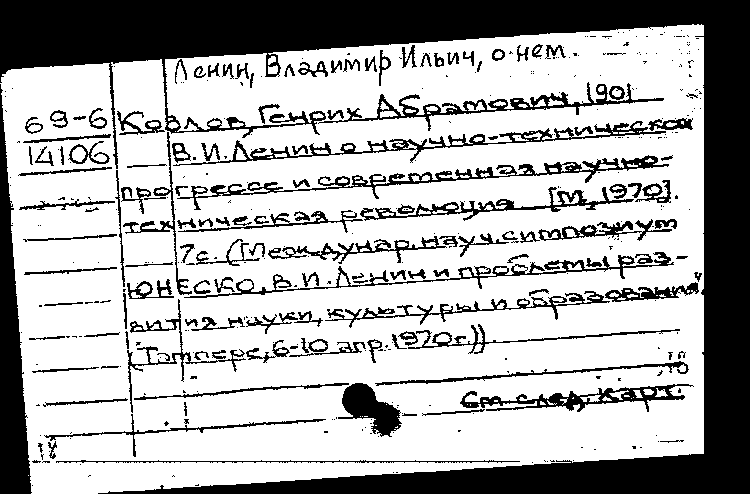 Ленин, Владимир Ильич, о нем.
69-6 Козлов, Генрих Абрамович, 1901
14106 В.И.Ленин о научно-техническом
прогрессе и современная научно-
техническая революция [М, 1970].
7с. (Междунар. науч. симпозиум
ЮНЕСКО, В.И.Ленин и проблемы раз-
вития науки, культуры и образования".
(Тампере, 6-10 апр. 1970г.)).
См след. карт.
18